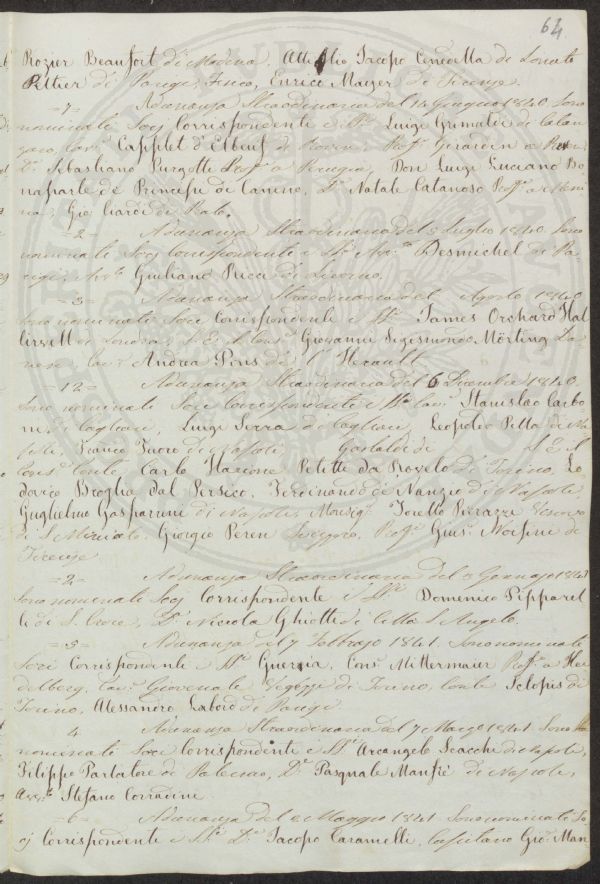 64
Rozier Beaufort di Modena, Attilio Jacopo Cenedella di Lonato
Peltier di Parigi, Enrico Mayer di Firenze.
=7= Adunanza Straordinaria del 14 Giugno 1840. Sono
nominati Socj Corrispondenti i SSri Luigi Grimaldi di Catan
zaro, Cavr Capplet d'Elbeuf di Roven, Proff. Gerardin a Roven,
Dr Sebastiano Purgotti Proff. a Perugia, Don Luigi Luciano Bo
naparte de Principi di Canino, Dr Natale Catanoso Proff. a Messi
na, Gio. Ciardi di Prato.
=2= Adunanza Straordinaria del 5 Luglio 1840. Sono
nominati Socj Corrispondenti i SSri Desmichel di Pa
rigi, Giuliano Ricci di Livorno.
=3= Adunanza Straordinaria del Agosto 1840
Sono nominati Soci Corrispondenti i SSri James Orchard Hal
liwell di Londra, S. E. il Cons. Giovanni Sigismondo Mörting Da
nese Cavr Andrea Piris de l'Herault
=12= Adunanza Straordinaria del 6 Dicembre 1840.
Sono nominati Soci Corrispondenti i SSri Cavr Stanislao Carbo
ni di Cagliari, Luigi Serra di Cagliari, Leopoldo Pilla di Na
poli, Franco Fuoco di Napoli, Garibaldi di S. E. il
Conte Carlo Ilarione Petitti da Roreto di Torino, Lo
dovico Broglia dal Persico, Ferdinando de Nanzio di Napoli,
Guglielmo Gasparrini di Napoli, Monsigr Torello Pierazzi Vescovo
di S. Miniato, Giorgio Peren Svizzero, Profr Gius. Morsini di
Firenze
=2= Adunanza Straordinaria del 3 Gennajo 1841
Sono nominati Socj Corrispondenti i SSri Domenico Pipparel
li di S. Croce, Dr Niccola Ghiotti di Città S. Angelo.
=5= Adunanza del 7 Febbrajo 1841. Sono nominati
Soci Corrispondenti i SSri Guernia, Cons. Mittermaier Proff. a Hei
delberg, Cavr Giovenale Vegezzi di Torino, Conte Sclopis di
Torino, Alessandro Labord di Parigi.
4 Adunanza Straordinaria del 7 Marzo 1841. Sono
nominati Soci Corrispondenti i SSri Arcangelo Scacchi di Napoli,
Filippo Parlatore di Palermo, Dr Pasquale Manfrè di Napoli,
Avvto Stefano Corradini.
=6= Adunanza del 2 Maggio 1841. Sono nominati So
cj Corrispondenti i SSri Dr Jacopo Caramelli, Capitano Gio. Man